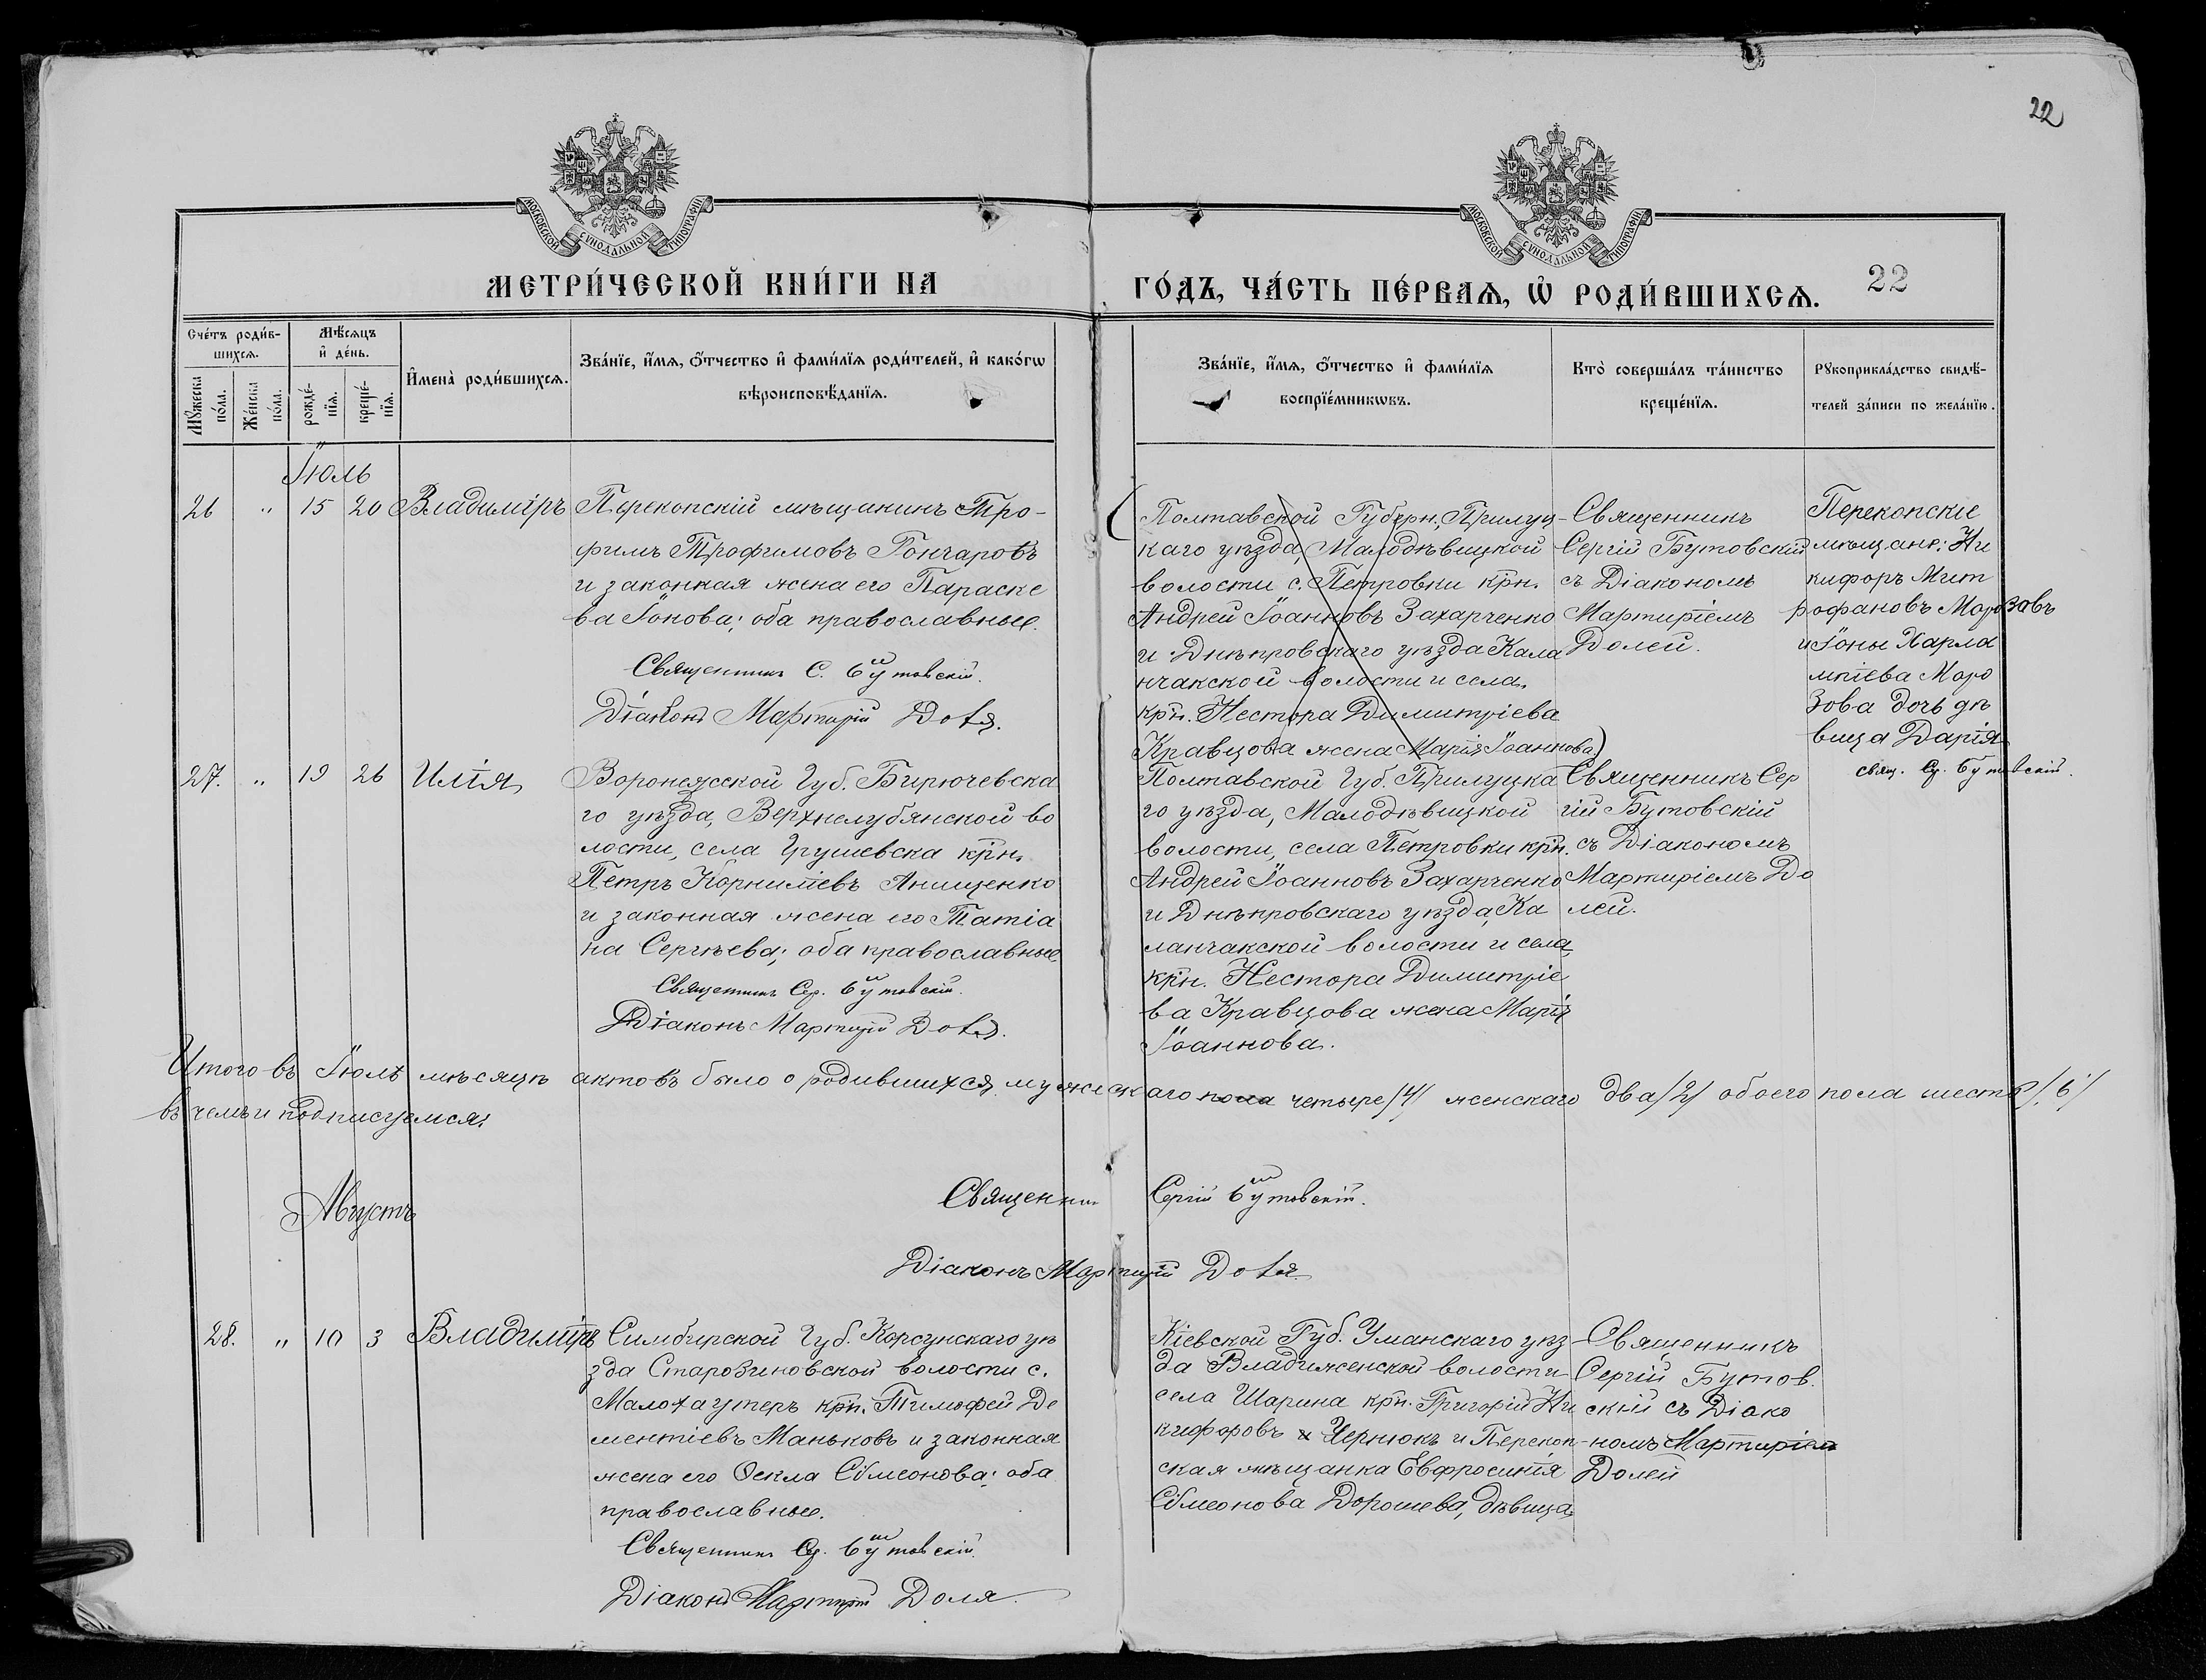 22
МОСКОВСКОЙ СѴНОДАЛЬНОЙ ТИПОГРАФІИ
МОСКОВСКОЙ СѴНОДАЛЬНОЙ ТИПОГРАФІИ
МЕТРИ́ЧЕСКОЙ КНИ́ГИ НА
ГО́ДЪ, ЧА́СТЬ ПЕ́РВАѦ, Ѡ҆ РОДИ́ВШИХСѦ.
22
Сче́тъ роди́в-
шихсѧ.
Мꙋ́жеска
по́ла.
Же́нска
по́ла.
Мѣ́сѧцъ
и҆ де́нь.
рожде́-
нїѧ.
креще́-
нїѧ.
И҆мена̀ роди́вшихсѧ.
Зва́нїе, и҆́мѧ, ѻ҆́тчество и҆ фами́лїѧ роди́телей, и҆ како́гѡ
вѣроисповѣ́данїѧ.
Зва́нїе, и҆́мѧ, ѻ҆́тчество и҆ фами́лїѧ
воспрїе́мникѡвъ.
Кто̀ соверша́лъ та́инство
креще́нїѧ.
Рꙋкоприкла́дство свидѣ́-
телей за́писи по жела́нїю.
Іюль
26 " 15 20 Владиміръ
Перекопскій мѣщанинъ Тро-
фимъ Трофимовъ Гончаровъ
и законная жена его Параске
ва Іонова; оба православные.
Священникъ С. Бутовскій.
Діаконъ Мартирій Доля.
Полтавской Губерн., Прилуц-
каго уѣзда, Малодѣвицкой
волости с. Петровки крн.
Андрей Іоанновъ Захарченко
и Днѣпровскаго уѣзда Кала
нчакской волости и села,
крн. Нестора Димитріева
Кравцова жена Марія Іоаннова)
Священникъ
Сергій Бутовскій
съ Діакономъ
Мартиріемъ
Долей.
Перекопскіе
мѣщане: Ни
кифоръ Мит
рофановъ Морозовъ
и Іоны Харла
мпіева Моро
зова дочь дѣ
вица Дарія
свящ. Ср. Бутовскій.
27. " 19 26 Илія
Воронежской Губ. Бирючевска
го уѣзда, Верхнелубянской во
лости, села Грушевска крн.
Петръ Корниліевъ Анищенко
и законная жена его Татіа
на Сергѣева; оба православные
Священникъ Сер. Бутовскій.
Діаконъ Мартирій Доля.
Полтавской Губ. Прилуцка
го уѣзда, Малодѣвицкой
волости, села Петровки крн.
Андрей Іоанновъ Захарченко
и Днѣпровскаго уѣзда, Ка
ланчакской волости и села,
крн. Нестора Димитріе
ва Кравцова жена Марія
Іоаннова.
Священникъ Сер
гій Бутовскій
съ Діакономъ
Мартиріемъ До
лей.
Итого въ Іюлѣ мѣсяцѣ актовъ было о родившихся мужескаго пола четыре /4/ женскаго два /2/ обоего пола шесть /6/
въ чемъ и подписуемся:
Священникъ Сергій Бутовскій.
Діаконъ Мартирій Доля
Августъ
28. " 10 3 Владиміръ
Симбирской Губ. Корсунскаго уѣ
зда Старозиновской волости с.
Малохаутеръ крн. Тимофей Де
ментіевъ Маньковъ и законная
жена его Ѳекла Сѵмеонова; оба
православные.
Священникъ Ср. Бутовскій.
Діаконъ Мартирій Доля.
Кіевской Губ. Уманскаго уѣз-
да Владиженской волости
села Шарина крн. Григорій Ни
кифоровъ Чернюкъ и Перекоп-
ская мѣщанка Евфросинія
Сѵмеонова Дорошева, дѣвица
Священникъ
Сергій Бутов.
скій съ Діако
номъ Мартиріем
Долей